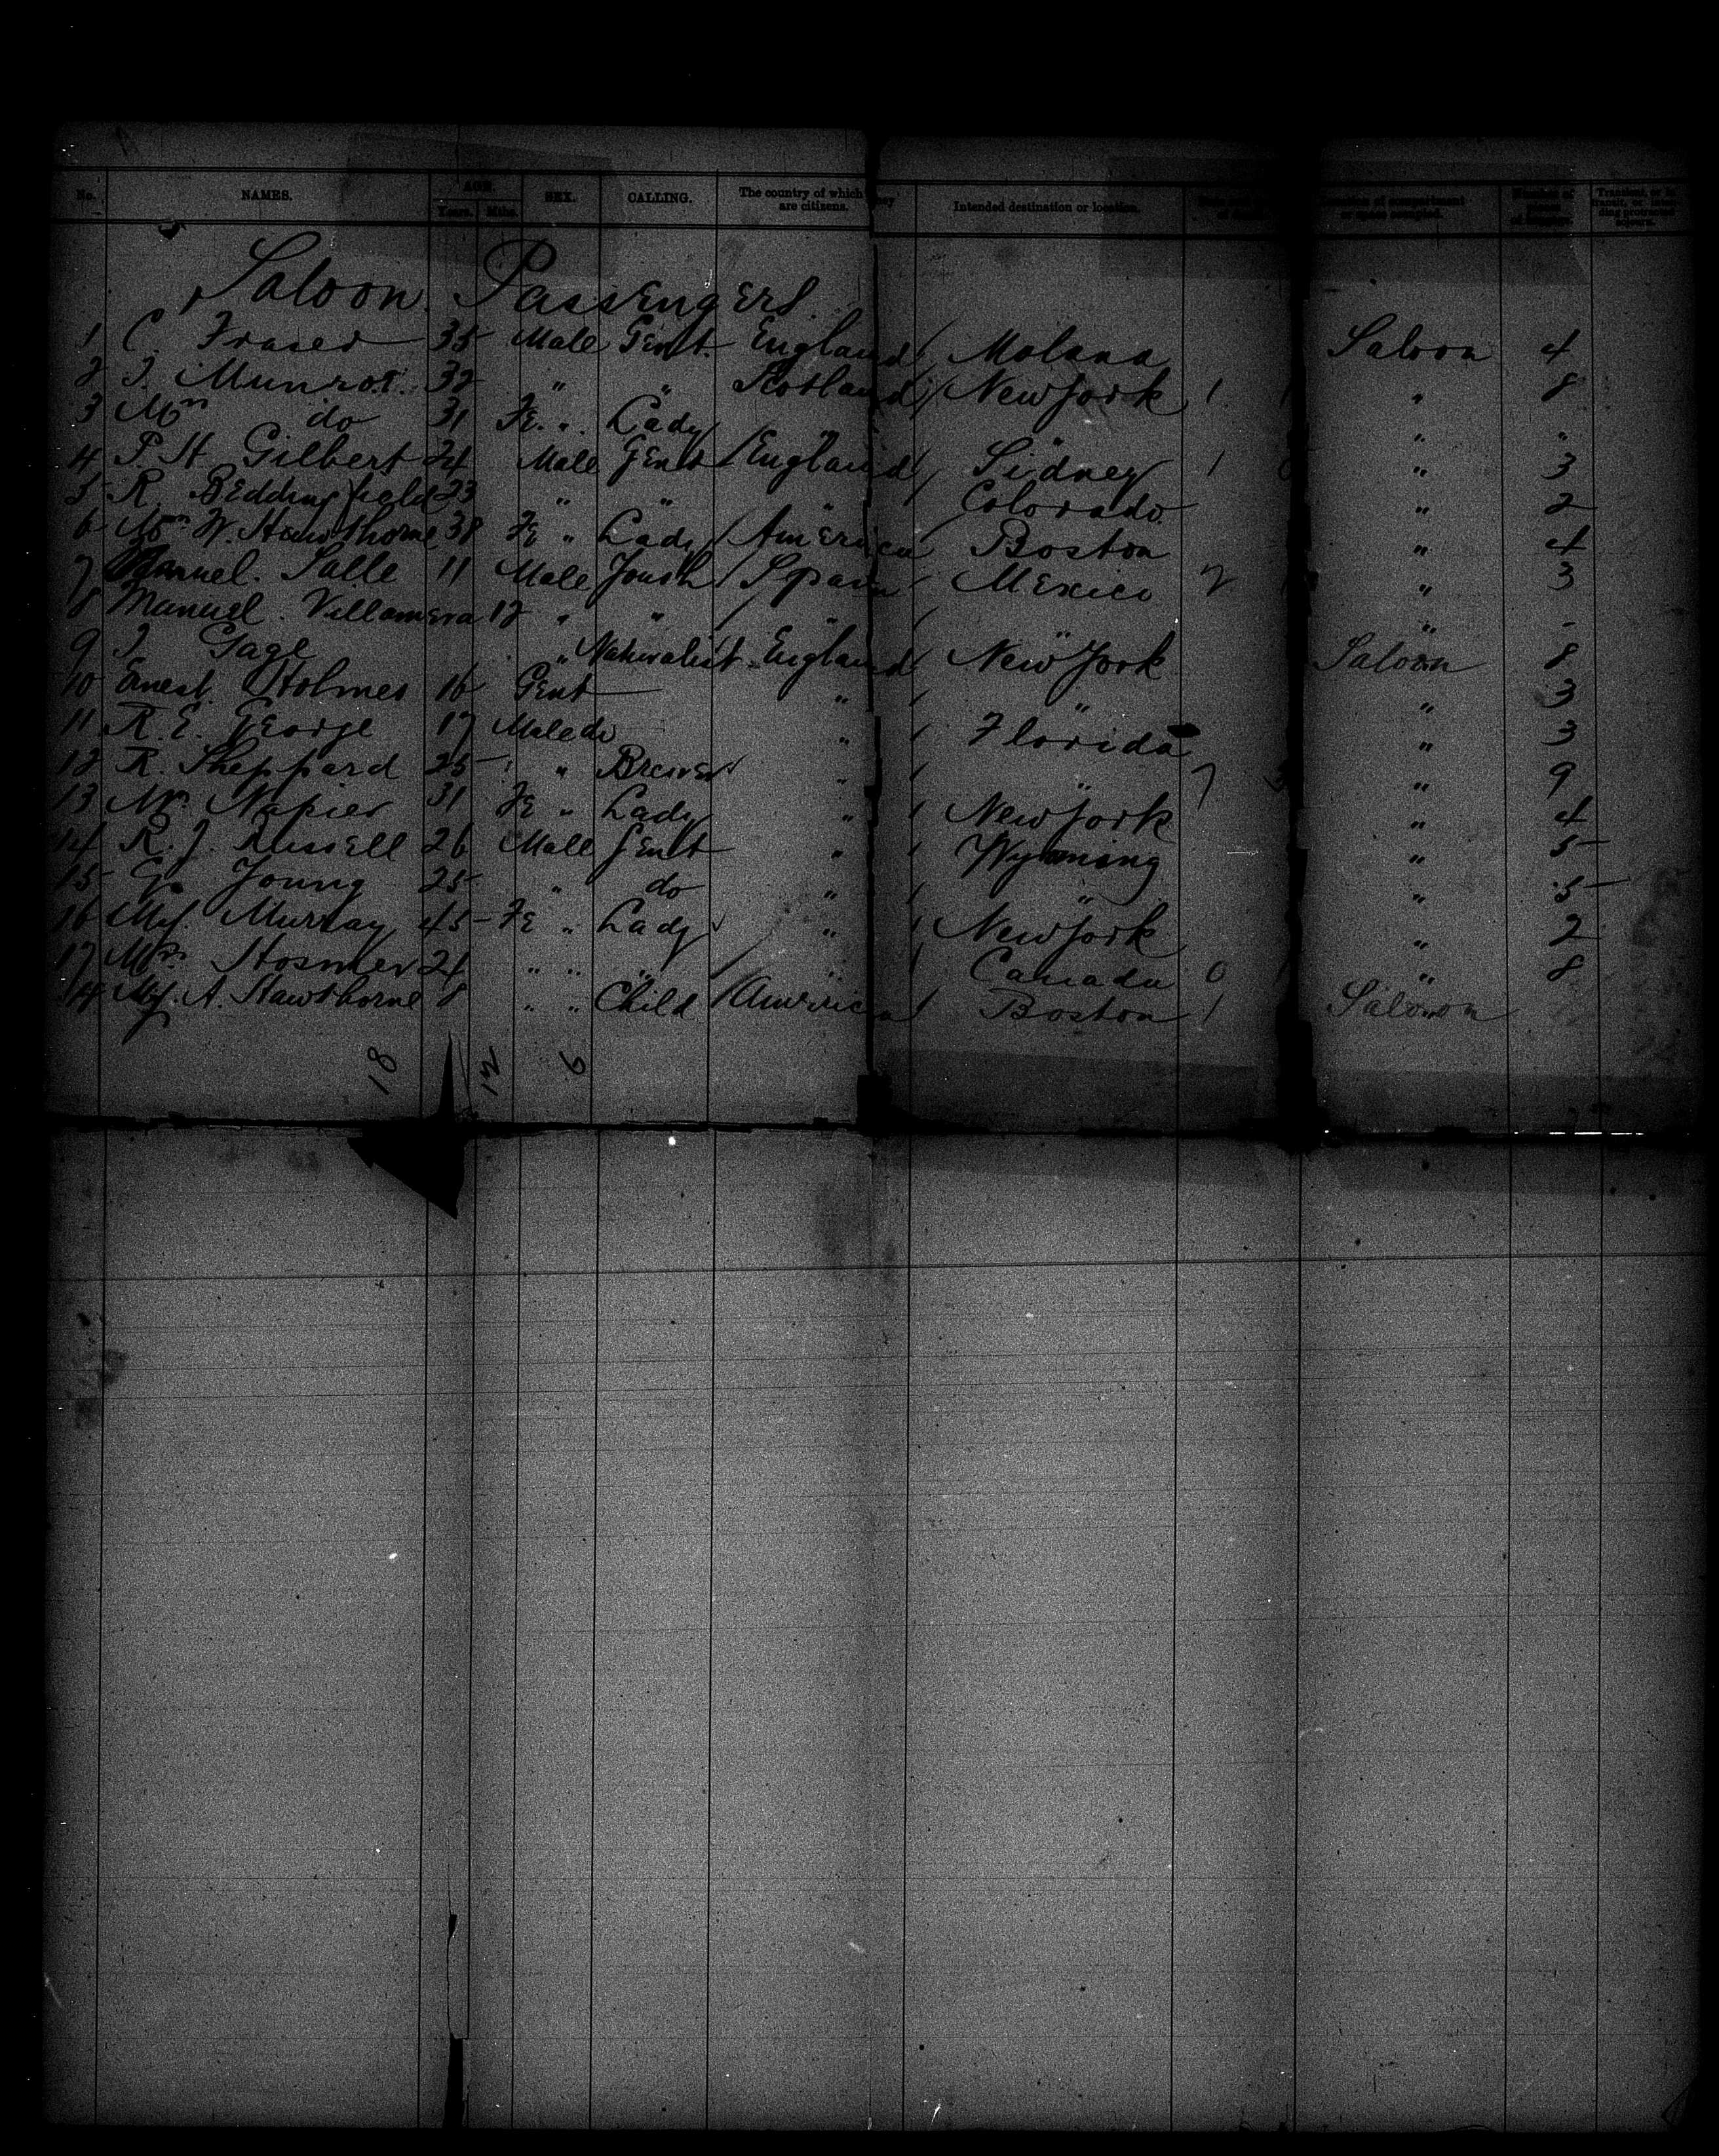 No. NAMES. AGE. Years. Mths. SEX. CALLING. The country of which they are citizens. Intended destination or location. Transient, or in transit, or intending protracted sojourn.
Saloon Passengers
1 C. Fraser 35 Male Gent. England Saloon 4
2 J. Munroe 32 " " Scotland New York 1 1 " 8
3 Mrs do 31 Fe " Lady " " " "
4 P. H. Gilbert 24 Male Gent England Sidney 1 " 3
5 R. Beddingfield 23 " " " Colorado " 2
6 Mrs W. Hawthorne 38 Fe " Lady America Boston " 4
7 Manuel Salle 11 Male Youth Spain Mexico 2 " 3
8 Manuel Villamera 12 " " " " -
9 J. Gage " Naturalist England New York Saloon 8
10 Ernest Holmes 16 Gent " " " 3
11 R. E. George 17 Male do " Florida " 3
12 R. Sheppard 25 " Brewer " " 7 3 " 9
13 Napier 31 Fe " Lady " New York " 4
14 R. J. Russell 26 Male Gent " Wyoming " 5
15 G. Young 25 " do " " " 5
16 Murray 45 Fe " Lady " New York " 2
17 Mrs Hosmer 24 " " " " Canada 0 1 " 8
A. Hawthorne 8 " " Child America Boston 1 Saloon
18 12 6